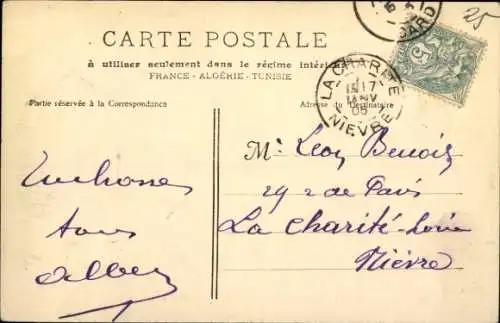 25
CARTE POSTALE
à utiliser seulement dans le régime intérieur
FRANCE - ALGÉRIE - TUNISIE
Partie réservée à la Correspondance
Adresse du Destinataire
LA CHARITÉ
17
JANV
05
NIÈVRE
GARD
5
Mr Léon Benoit
29 r de Paris
La Charité-Loire
Nièvre
tous
Albert